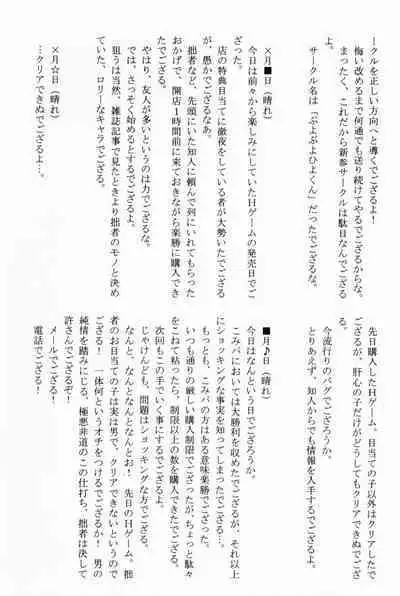 ークルを正しい方向へと導くでござるよ！
悔い改めるまで何通でも送り続けてやるでござるからな。
まったく、これだから新参サークルは駄目なんでござる
よ。
サークル名は「ぷよぷよひよくん」だったでござるな。
×月■日（晴れ）
今日は前々から楽しみにしていたHゲームの発売日でご
ざった。
店の特典目当てに徹夜をしている者が大勢いたでござる
が、愚かでござるなあ。
拙者など、先に先に知人に頼んで列にいれてもらった
おかげで、開店1時間前に来ておきながら楽勝に購入でき
たでござる。
やはり、友人が多いというのは力でござるな。
では、さっそく始めるとするでござる。
狙うは当然、雑誌記事で見たときより拙者のモノと決め
ていた、ロリーなキャラでござる。
×月☆日（晴れ）
…クリアできぬでござるよ…。
先日購入したHゲーム、目当ての子以外はクリアしたで
ござるが、肝心の子だけがどうしてもクリアできぬでござ
る。
今流行りのバグでござろうか。
とりあえず、知人からでも情報を入手するでござるよ。
■月♪日（晴れ）
今日はなんという日でござろうか。
こみパにおいては大勝利を収めたでござるが、それ以上
にショッキングな事実を知ってしまったでござる…。
もっとも、こみパの方はある意味楽勝でござった。
いつも通りの厳しい購入制限でござったが、ちょと駄々
をこねて粘ったら、制限以上の数を購入できたでござる。
次回もこの手でいく事にするでござるよ。
じゃけんども、問題はショッキングな方でござる。
なんと、なんとなんとなんとお！　先日のHゲーム、拙
者のお目当ての子は実は男で、クリアできないというので
ござる！　一体何というオチをつけるでござるか！　男の
純情を踏みにじる、極悪非道のこの仕打ち、拙者は決して
許さんでござるぞ！
メールでござる！
電話でござる！